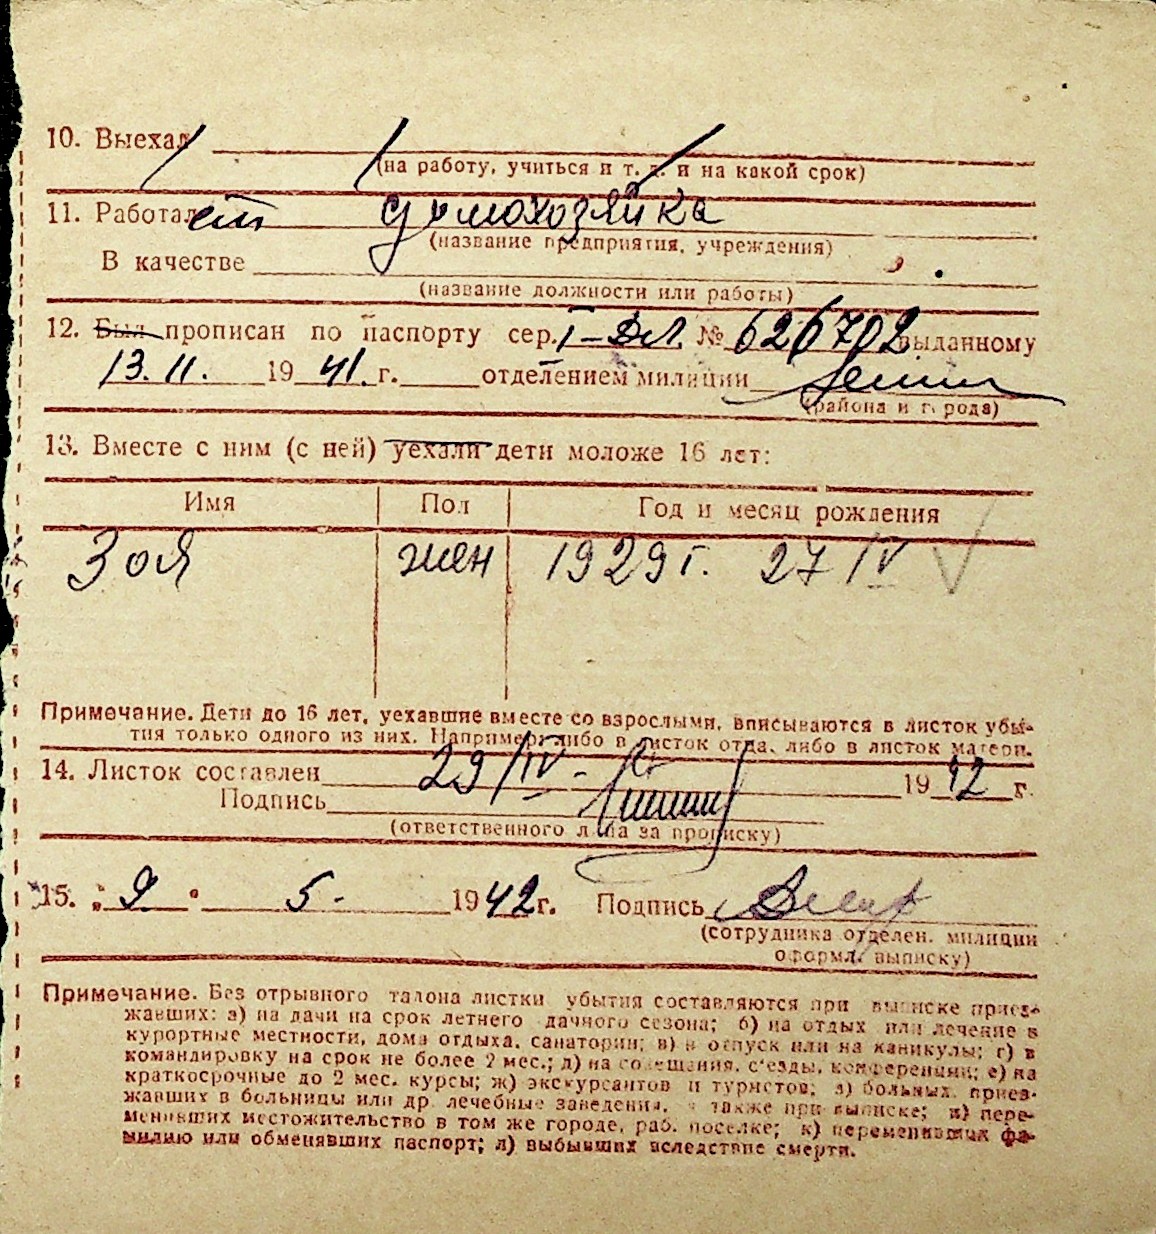 10. Выехал
(на работу, учиться и т. д. и на какой срок)
11. Работает домохозяйка
(название предприятия, учреждения)
В качестве
(название должности или работы)
12. Был прописан по паспорту сер. I-ДЛ № 626702 выданному
13.11. 1941 г. отделением милиции
(района и города)
13. Вместе с ним (с ней) уехали дети моложе 16 лет:
Имя Пол Год и месяц рождения
Зоя жен 1929 г. 27 IV
Примечание. Дети до 16 лет, уехавшие вместе со взрослыми, вписываются в листок убы-
тия только одного из них. Например: либо в листок отца, либо в листок матери.
14. Листок составлен 29/IV - 1942 г.
Подпись
(ответственного лица за прописку)
15. „9" 5 - 1942 г. Подпись
(сотрудника отделен. милиции
оформл. выписку)
Примечание. Без отрывного талона листки убытия составляются при выписке приез-
жавших: а) на дачи на срок летнего дачного сезона; б) на отдых или лечение в
курортные местности, дома отдыха, санатории; в) в отпуск или на каникулы; г) в
командировку на срок не более 2 мес.; д) на совещания, с'езды, конференции; е) на
краткосрочные до 2 мес. курсы; ж) экскурсантов и туристов; з) больных, приез-
жавших в больницы или др. лечебные заведения, а также при выписке; и) пере-
менивших местожительство в том же городе, раб. поселке; к) переменивших фа-
милию или обменявших паспорт; л) выбывших вследствие смерти.